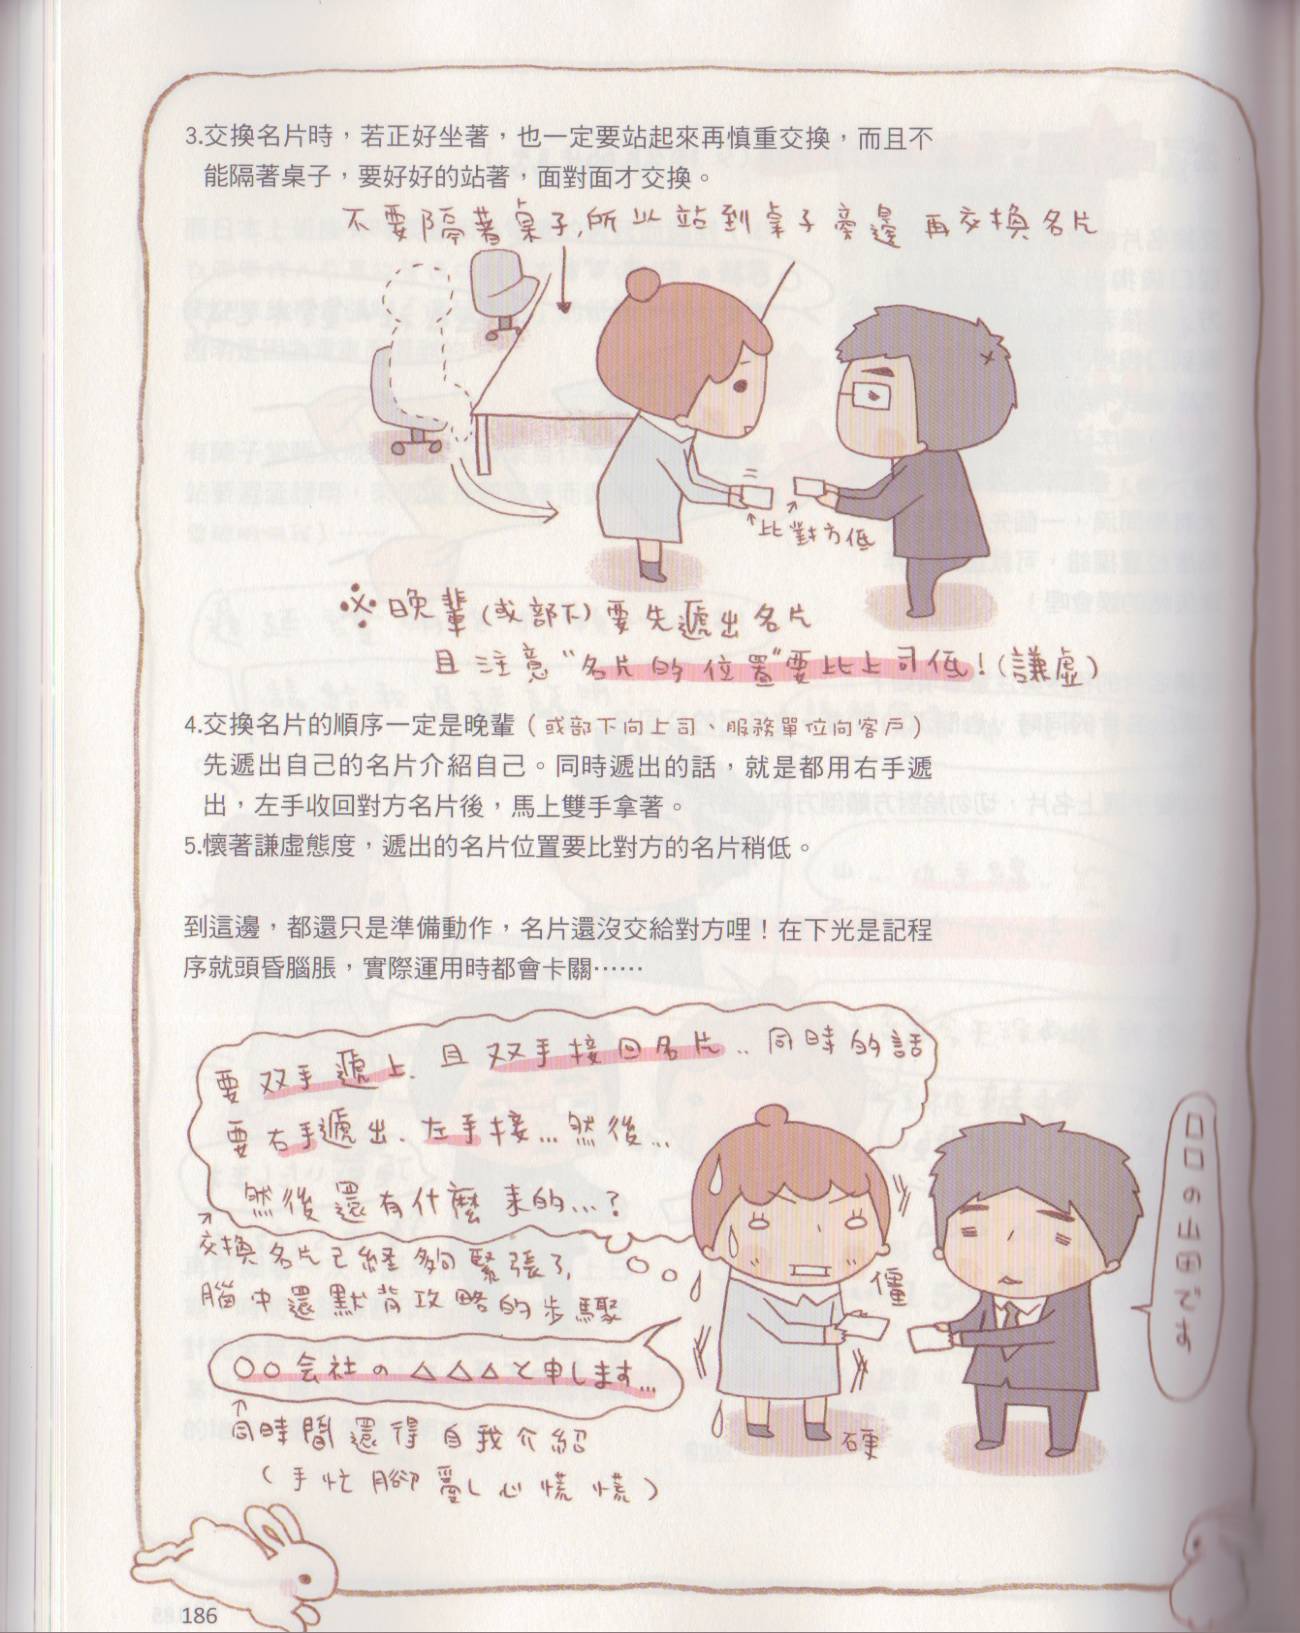 3.交換名片時，若正好坐著，也一定要站起來再慎重交換，而且不
能隔著桌子，要好好的站著，面對面才交換。
不要隔著桌子,所以站到桌子旁邊 再交換名片
比對方低
※ 晚輩(或部下)要先遞出名片
且注意"名片的位置"要比上司低!(謙虛)
4.交換名片的順序一定是晚輩（或部下向上司、服務單位向客戶）
先遞出自己的名片介紹自己。同時遞出的話，就是都用右手遞
出，左手收回對方名片後，馬上雙手拿著。
5.懷著謙虛態度，遞出的名片位置要比對方的名片稍低。
到這邊，都還只是準備動作，名片還沒交給對方哩！在下光是記程
序就頭昏腦脹，實際運用時都會卡關……
要双手遞上. 且双手接回名片.. 同時的話
要右手遞出.左手接...然後...
然後還有什麼来的...?
交換名片已経夠緊張了,
腦中還默背攻略的步驟
○○会社の△△△と申します...
同時間還得自我介紹
(手忙腳亂心慌慌)
僵
硬
口口の山田です
186